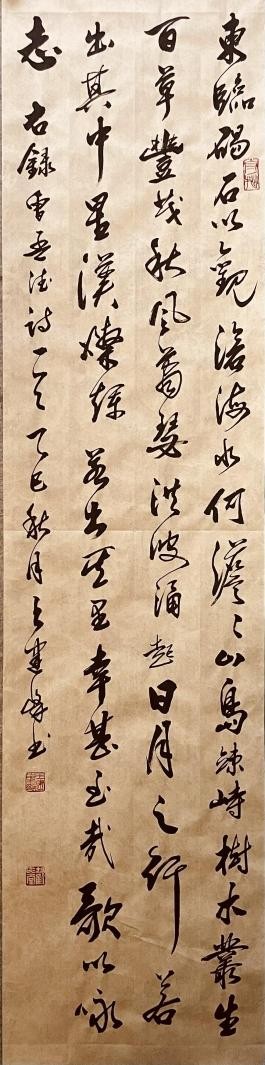 東臨碣石以觀滄海水何澹〻山島竦峙樹木叢生
百草豐茂秋風蕭瑟洪波涌起日月之行若
出其中星漢燦爛若出其里幸甚至哉歌以咏
志 右錄曹孟德詩一首乙巳秋月王建峰书